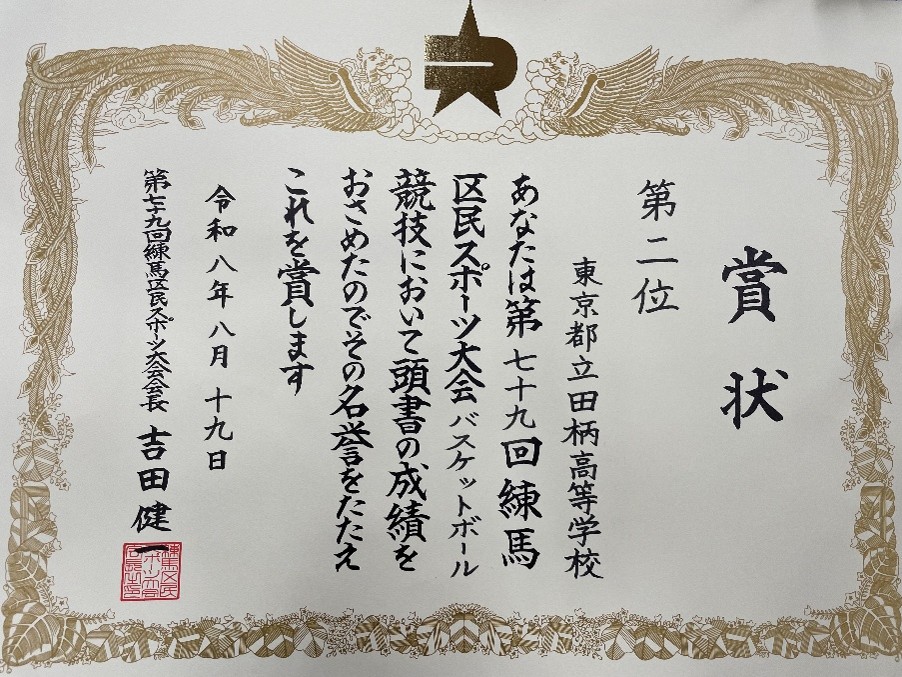 賞状
第二位
東京都立田柄高等学校
あなたは第七十九回練馬
区民スポーツ大会バスケットボール
競技において頭書の成績を
おさめたのでその名誉をたたえ
これを賞します
令和八年八月十九日
第七十九回練馬区民スポーツ大会会長 吉田健一